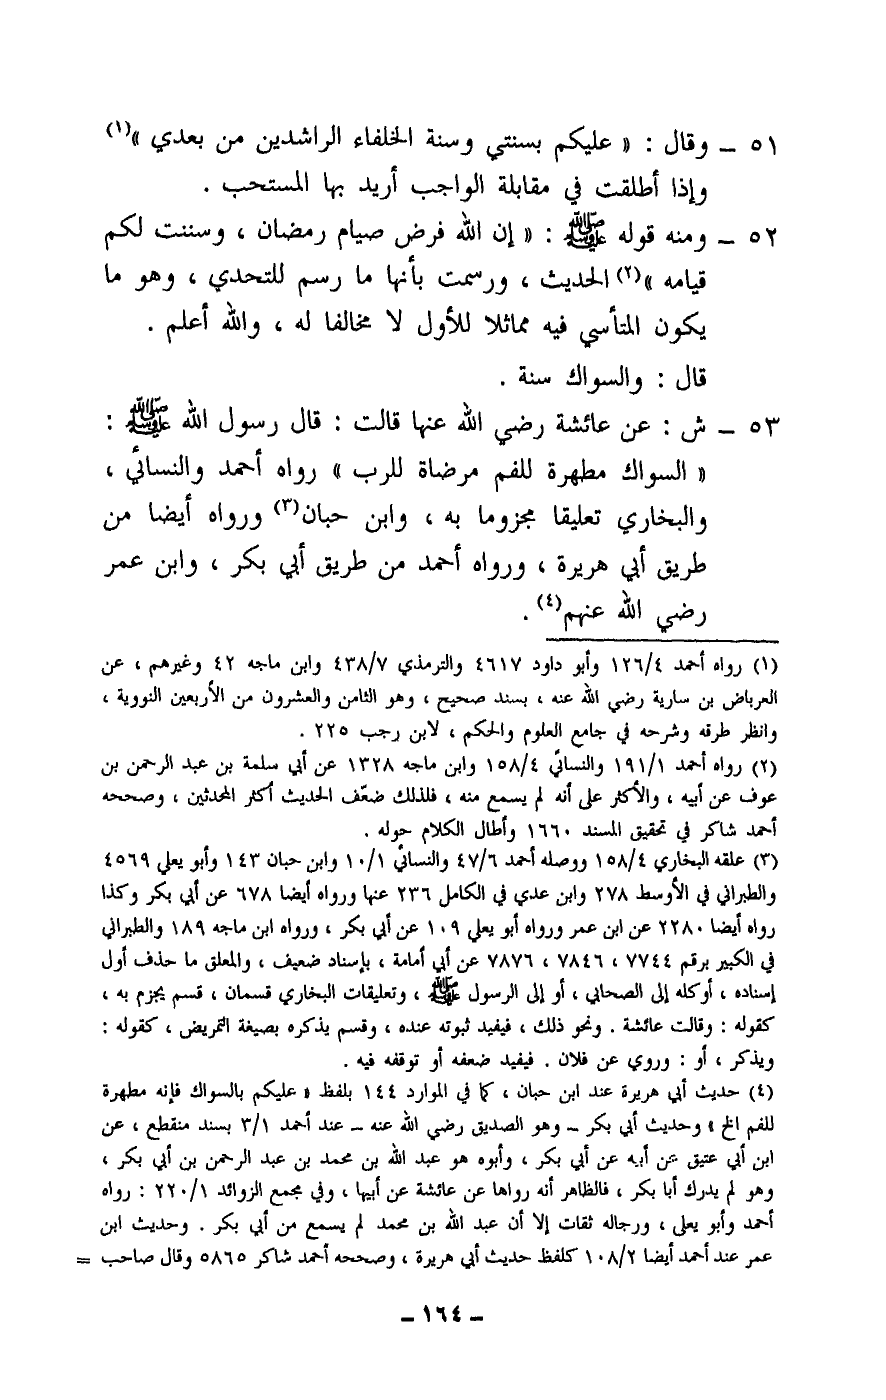 ٥١ ــ وقال : « عليكم بسنتي وسنة الخلفاء الراشدين من بعدي »(١)
وإذا أطلقت في مقابلة الواجب أريد بها المستحب .
٥٢ ــ ومنه قوله ﷺ : « إن الله فرض صيام رمضان ، وسننت لكم
قيامه »(٢) الحديث ، ورسمت بأنها ما رسم للتحدي ، وهو ما
يكون المتأسي فيه مماثلا للأول لا مخالفا له ، والله أعلم .
قال : والسواك سنة .
٥٣ ــ ش : عن عائشة رضي الله عنها قالت : قال رسول الله ﷺ :
« السواك مطهرة للفم مرضاة للرب » رواه أحمد والنسائي ،
والبخاري تعليقا مجزوما به ، وابن حبان(٣) ورواه أيضا من
طريق أبي هريرة ، ورواه أحمد من طريق أبي بكر ، وابن عمر
رضي الله عنهم(٤) .
(١) رواه أحمد ١٢٦/٤ وأبو داود ٤٦١٧ والترمذي ٤٣٨/٧ وابن ماجه ٤٢ وغيرهم ، عن
العرباض بن سارية رضي الله عنه ، بسند صحيح ، وهو الثامن والعشرون من الأربعين النووية ،
وانظر طرقه وشرحه في جامع العلوم والحكم ، لابن رجب ٢٢٥ .
(٢) رواه أحمد ١٩١/١ والنسائي ١٥٨/٤ وابن ماجه ١٣٢٨ عن أبي سلمة بن عبد الرحمن بن
عوف عن أبيه ، والأكثر على أنه لم يسمع منه ، فلذلك ضعّف الحديث أكثر المحدثين ، وصححه
أحمد شاكر في تحقيق المسند ١٦٦٠ وأطال الكلام حوله .
(٣) علقه البخاري ١٥٨/٤ ووصله أحمد ٤٧/٦ والنسائي ١٠/١ وابن حبان ١٤٣ وأبو يعلي ٤٥٦٩
والطبراني في الأوسط ٢٧٨ وابن عدي في الكامل ٢٣٦ عنها ورواه أيضا ٦٧٨ عن أبي بكر وكذا
رواه أيضا ٢٢٨٠ عن ابن عمر ورواه أبو يعلي ١٠٩ عن أبي بكر ، ورواه ابن ماجه ١٨٩ والطبراني
في الكبير برقم ٧٧٤٤ ، ٧٨٤٦ ، ٧٨٧٦ عن أبي أمامة ، بإسناد ضعيف ، والمعلق ما حذف أول
إسناده ، أوكله إلى الصحابي ، أو إلى الرسول ﷺ ، وتعليقات البخاري قسمان ، قسم يجزم به ،
كقوله : وقالت عائشة . ونحو ذلك ، فيفيد ثبوته عنده ، وقسم يذكره بصيغة التمريض ، كقوله :
ويذكر ، أو : وروي عن فلان . فيفيد ضعفه أو توقفه فيه .
(٤) حديث أبي هريرة عند ابن حبان ، كما في الموارد ١٤٤ بلفظ « عليكم بالسواك فإنه مطهرة
للفم الخ » وحديث أبي بكر ــ وهو الصديق رضي الله عنه ــ عند أحمد ٣/١ بسند منقطع ، عن
ابن أبي عتيق عن أبيه عن أبي بكر ، وأبوه هو عبد الله بن محمد بن عبد الرحمن بن أبي بكر ،
وهو لم يدرك أبا بكر ، فالظاهر أنه رواها عن عائشة عن أبيها ، وفي مجمع الزوائد ٢٢٠/١ : رواه
أحمد وأبو يعلى ، ورجاله ثقات إلا أن عبد الله بن محمد لم يسمع من أبي بكر . وحديث ابن
عمر عند أحمد أيضا ١٠٨/٢ كلفظ حديث أبي هريرة ، وصححه أحمد شاكر ٥٨٦٥ وقال صاحب =
ــ ١٦٤ ــ